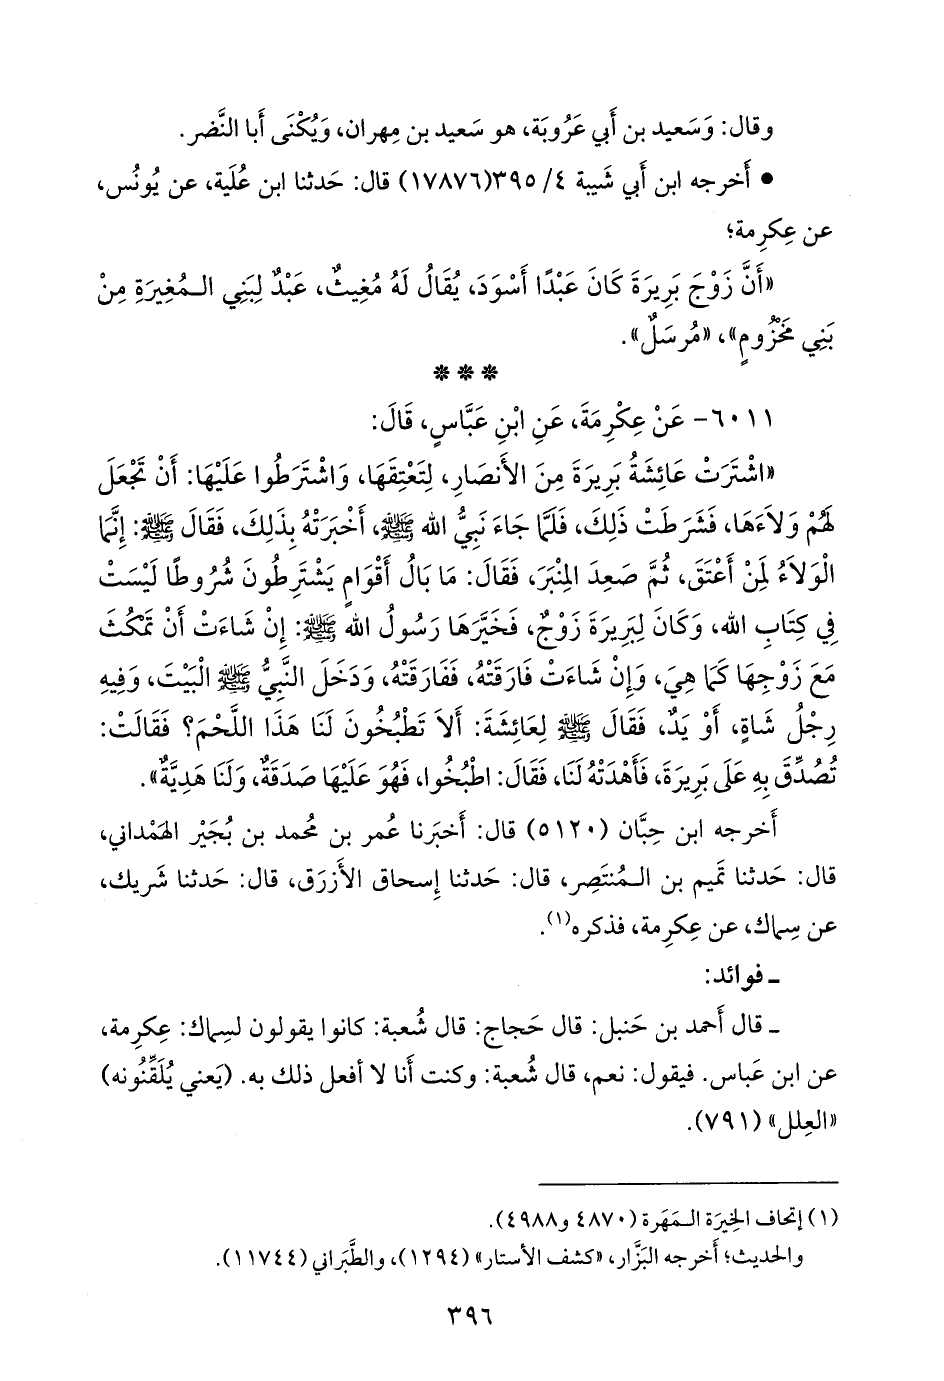 وقال: وَسَعيد بن أَبي عَرُوبَة، هو سَعيد بن مِهران، وَيُكْنَى أَبا النَّضر.
• أَخرجه ابن أَبي شَيبة ٤/ ٣٩٥(١٧٨٧٦) قال: حَدثنا ابن عُلَية، عن يُونُس،
عن عِكرِمة؛
«أَنَّ زَوْجَ بَرِيرَةَ كَانَ عَبْدًا أَسْوَدَ، يُقَالُ لَهُ مُغِيثٌ، عَبْدٌ لِبَنِي الـمُغِيرَةِ مِنْ
بَنِي مَخْزُومٍ»، «مُرسَلٌ».
***
٦٠١١- عَنْ عِكْرِمَةَ، عَنِ ابْنِ عَبَّاسٍ، قَالَ:
«اشْتَرَتْ عَائِشَةُ بَرِيرَةَ مِنَ الأَنصَارِ، لِتَعْتِقَهَا، وَاشْتَرَطُوا عَلَيْهَا: أَنْ تَجْعَلَ
لَهُمْ وَلاَءَهَا، فَشَرَطَتْ ذَلِكَ، فَلَمَّا جَاءَ نَبِيُّ الله ﷺ، أَخْبَرَتْهُ بِذَلِكَ، فَقَالَ ﷺ: إِنَّمَا
الْوَلاَءُ لِمَنْ أَعْتَقَ، ثُمَّ صَعِدَ الْمِنْبَرَ، فَقَالَ: مَا بَالُ أَقْوَامٍ يَشْتَرِطُونَ شُرُوطًا لَيْسَتْ
فِي كِتَابِ الله، وَكَانَ لِبَرِيرَةَ زَوْجٌ، فَخَيَّرَهَا رَسُولُ الله ﷺ: إِنْ شَاءَتْ أَنْ تَمْكُثَ
مَعَ زَوْجِهَا كَمَا هِيَ، وَإِنْ شَاءَتْ فَارَقَتْهُ، فَفَارَقَتْهُ، وَدَخَلَ النَّبِيُّ ﷺ الْبَيْتَ، وَفِيهِ
رِجْلُ شَاةٍ، أَوْ يَدٌ، فَقَالَ ﷺ لِعَائِشَةَ: أَلاَ تَطْبُخُونَ لَنَا هَذَا اللَّحْمَ؟ فَقَالَتْ:
تُصُدِّقَ بِهِ عَلَى بَرِيرَةَ، فَأَهْدَتْهُ لَنَا، فَقَالَ: اطْبُخُوا، فَهُوَ عَلَيْهَا صَدَقَةٌ، وَلَنَا هَدِيَّةٌ».
أَخرجه ابن حِبَّان (٥١٢٠) قال: أَخبَرنا عُمر بن مُحمد بن بُجَيْر الهَمْداني،
قال: حَدثنا تَميم بن الـمُنتَصِر، قال: حَدثنا إِسحاق الأَزرَق، قال: حَدثنا شَريك،
عن سِماك، عن عِكرِمة، فذكره(١).
ـ فوائد:
ـ قال أَحمد بن حَنبل: قال حَجاج: قال شُعبة: كانوا يقولون لسِماك: عِكرِمة،
عن ابن عَباس. فيقول: نعم، قال شُعبة: وكنت أَنا لا أَفعل ذلك به. (يَعني يُلَقِّنُونه)
«العِلل» (٧٩١).
(١) إتحاف الخِيرَة الـمَهَرة (٤٨٧٠ و٤٩٨٨).
والحديث؛ أخرجه البَزَّار، «كشف الأستار» (١٢٩٤)، والطَّبَراني (١١٧٤٤).
٣٩٦